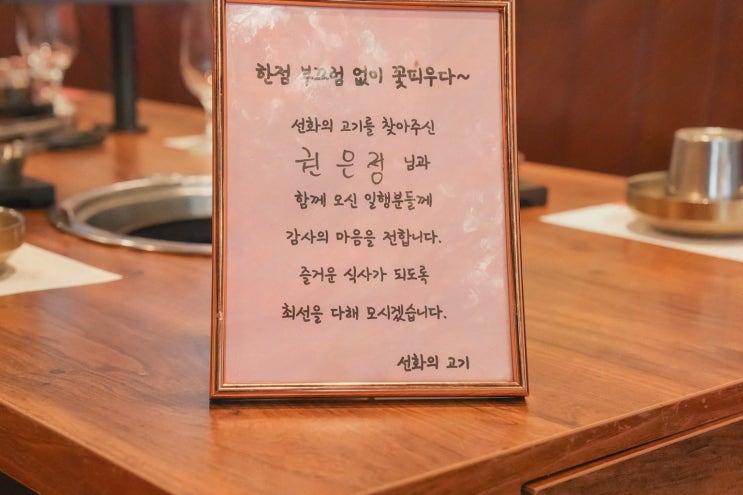 한점 부끄럼 없이 꽃피우다~
선화의 고기를 찾아주신
권은정 님과
함께 오신 일행분들께
감사의 마음을 전합니다.
즐거운 식사가 되도록
최선을 다해 모시겠습니다.
선화의 고기